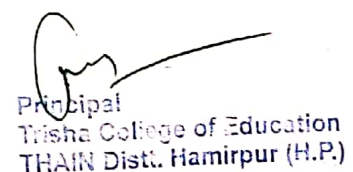 Principal
Trisha College of Education
THAIN Distt. Hamirpur (H.P.)